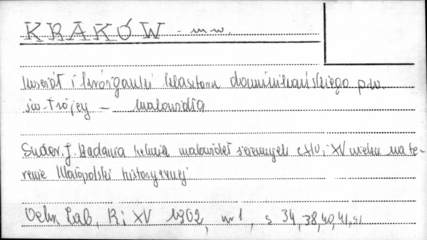 KRAKÓW - m.w.
kościół i krużganki klasztoru dominikańskiego p.w.
św. Trójcy - malowidła
Sudor. J. Badania technik malowideł ściennych XIV i XV wieku na te-
renie Małopolski historycznej
Ochr. Zab, R: XV 1962, nr 1, s 34, 38, 40, 41, 51